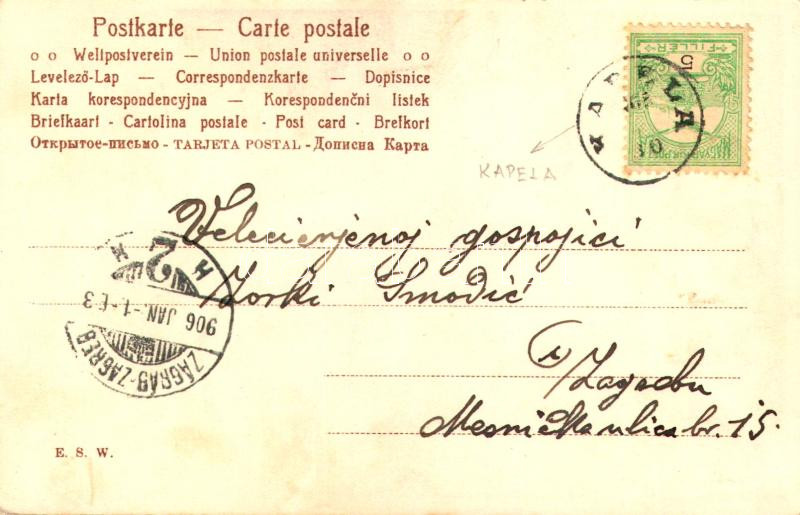 Postkarte — Carte postale
o o Weltpostverein — Union postale universelle o o
Levelező-Lap — Correspondenzkarte — Dopisnice
Karta korespondencyjna — Korespondenčni listek
Briefkaart - Cartolina postale - Post card - Brefkort
Открытое-письмо - TARJETA POSTAL - Дописна Карта
5
FILLÉR
MAGYAR KIR. POSTA
KAPELA
10
KAPELA
Velecienjenoj gospojici
Zorki Smodić
u Zagrebu
Mesnička ulica br. 15.
2
906 JAN.-1.-É.3
ZÁGRÁB-ZAGREB
E. S. W.